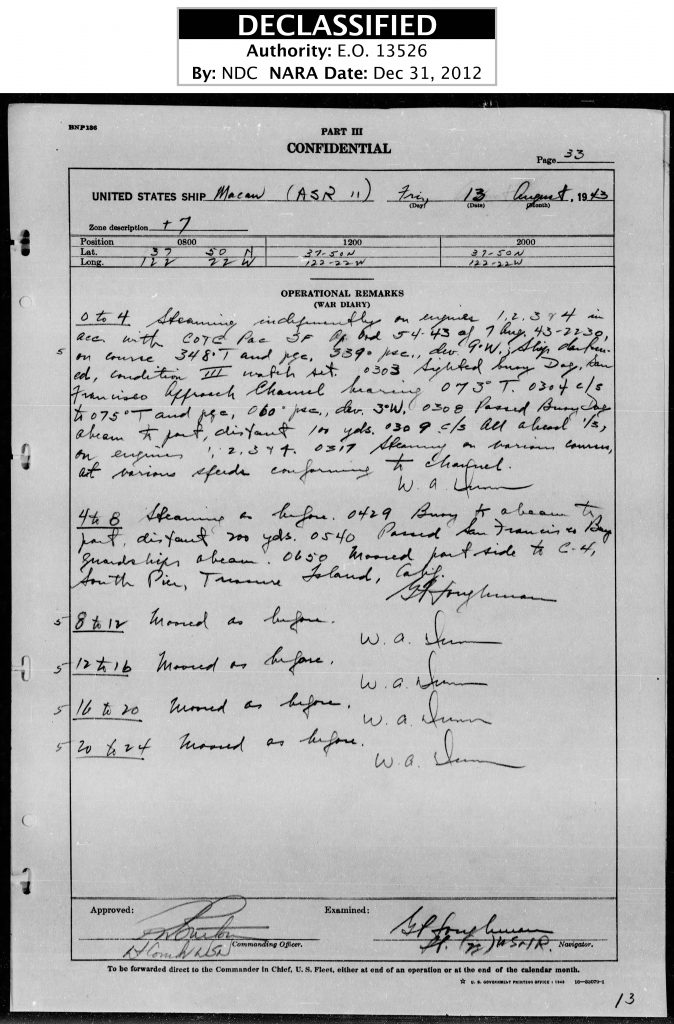 DECLASSIFIED
Authority: E.O. 13526
By: NDC NARA Date: Dec 31, 2012
BNP 136
PART III
CONFIDENTIAL
Page 33
UNITED STATES SHIP Macaw (ASR 11) Fri, 13 August, 1943
(Day) (Date) (Month)
Zone description +7
Position 0800 1200 2000
Lat. 37 50 N 37-50N 37-50N
Long. 122 22 W 122-22W 122-22W
OPERATIONAL REMARKS
(WAR DIARY)
0 to 4 Steaming independently on engines 1, 2, 3 & 4 in
acc. with COTC Pac SF Op. Ord 54-43 of 7 Aug. 43-2230,
5 on course 348°T and pgc, 339° psc., dev. 9°W. Ship darken-
ed, condition III watch set. 0303 Sighted buoy Dog, San
Francisco Approach Channel bearing 073°T. 0304 c/s
to 075°T and pgc, 060° psc., dev. 3°W. 0308 Passed Buoy Dog
abeam to port, distant 100 yds. 0309 c/s All ahead 1/3,
on engines 1, 2, 3 & 4. 0317 Steaming on various courses,
at various speeds conforming to channel.
W. A. Dunn
4 to 8 Steaming as before. 0429 Buoy abeam to
port, distant 200 yds. 0540 Passed San Francisco Bay
guardships abeam. 0650 Moored port side to C-4,
South Pier, Treasure Island, Calif.
5 8 to 12 Moored as before.
W. A. Dunn
5 12 to 16 Moored as before.
W. A. Dunn
5 16 to 20 Moored as before.
W. A. Dunn
5 20 to 24 Moored as before.
W. A. Dunn
Approved: Examined:
Lt Comdr USN Commanding Officer. Lt. (jg) USNR. Navigator.
To be forwarded direct to the Commander in Chief, U. S. Fleet, either at end of an operation or at the end of the calendar month.
☆ U. S. GOVERNMENT PRINTING OFFICE : 1943
13